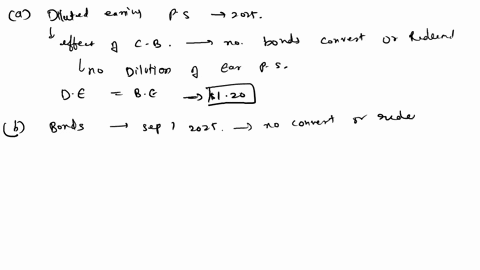 (a) Diluted earing P.S → 2025.
effect of C.B. → no. bonds convert or Redeem
no Dilution of ear P.S.
D.E = B.E → $1.20
(b) Bonds → Sep 1 2025. → no convert or rede